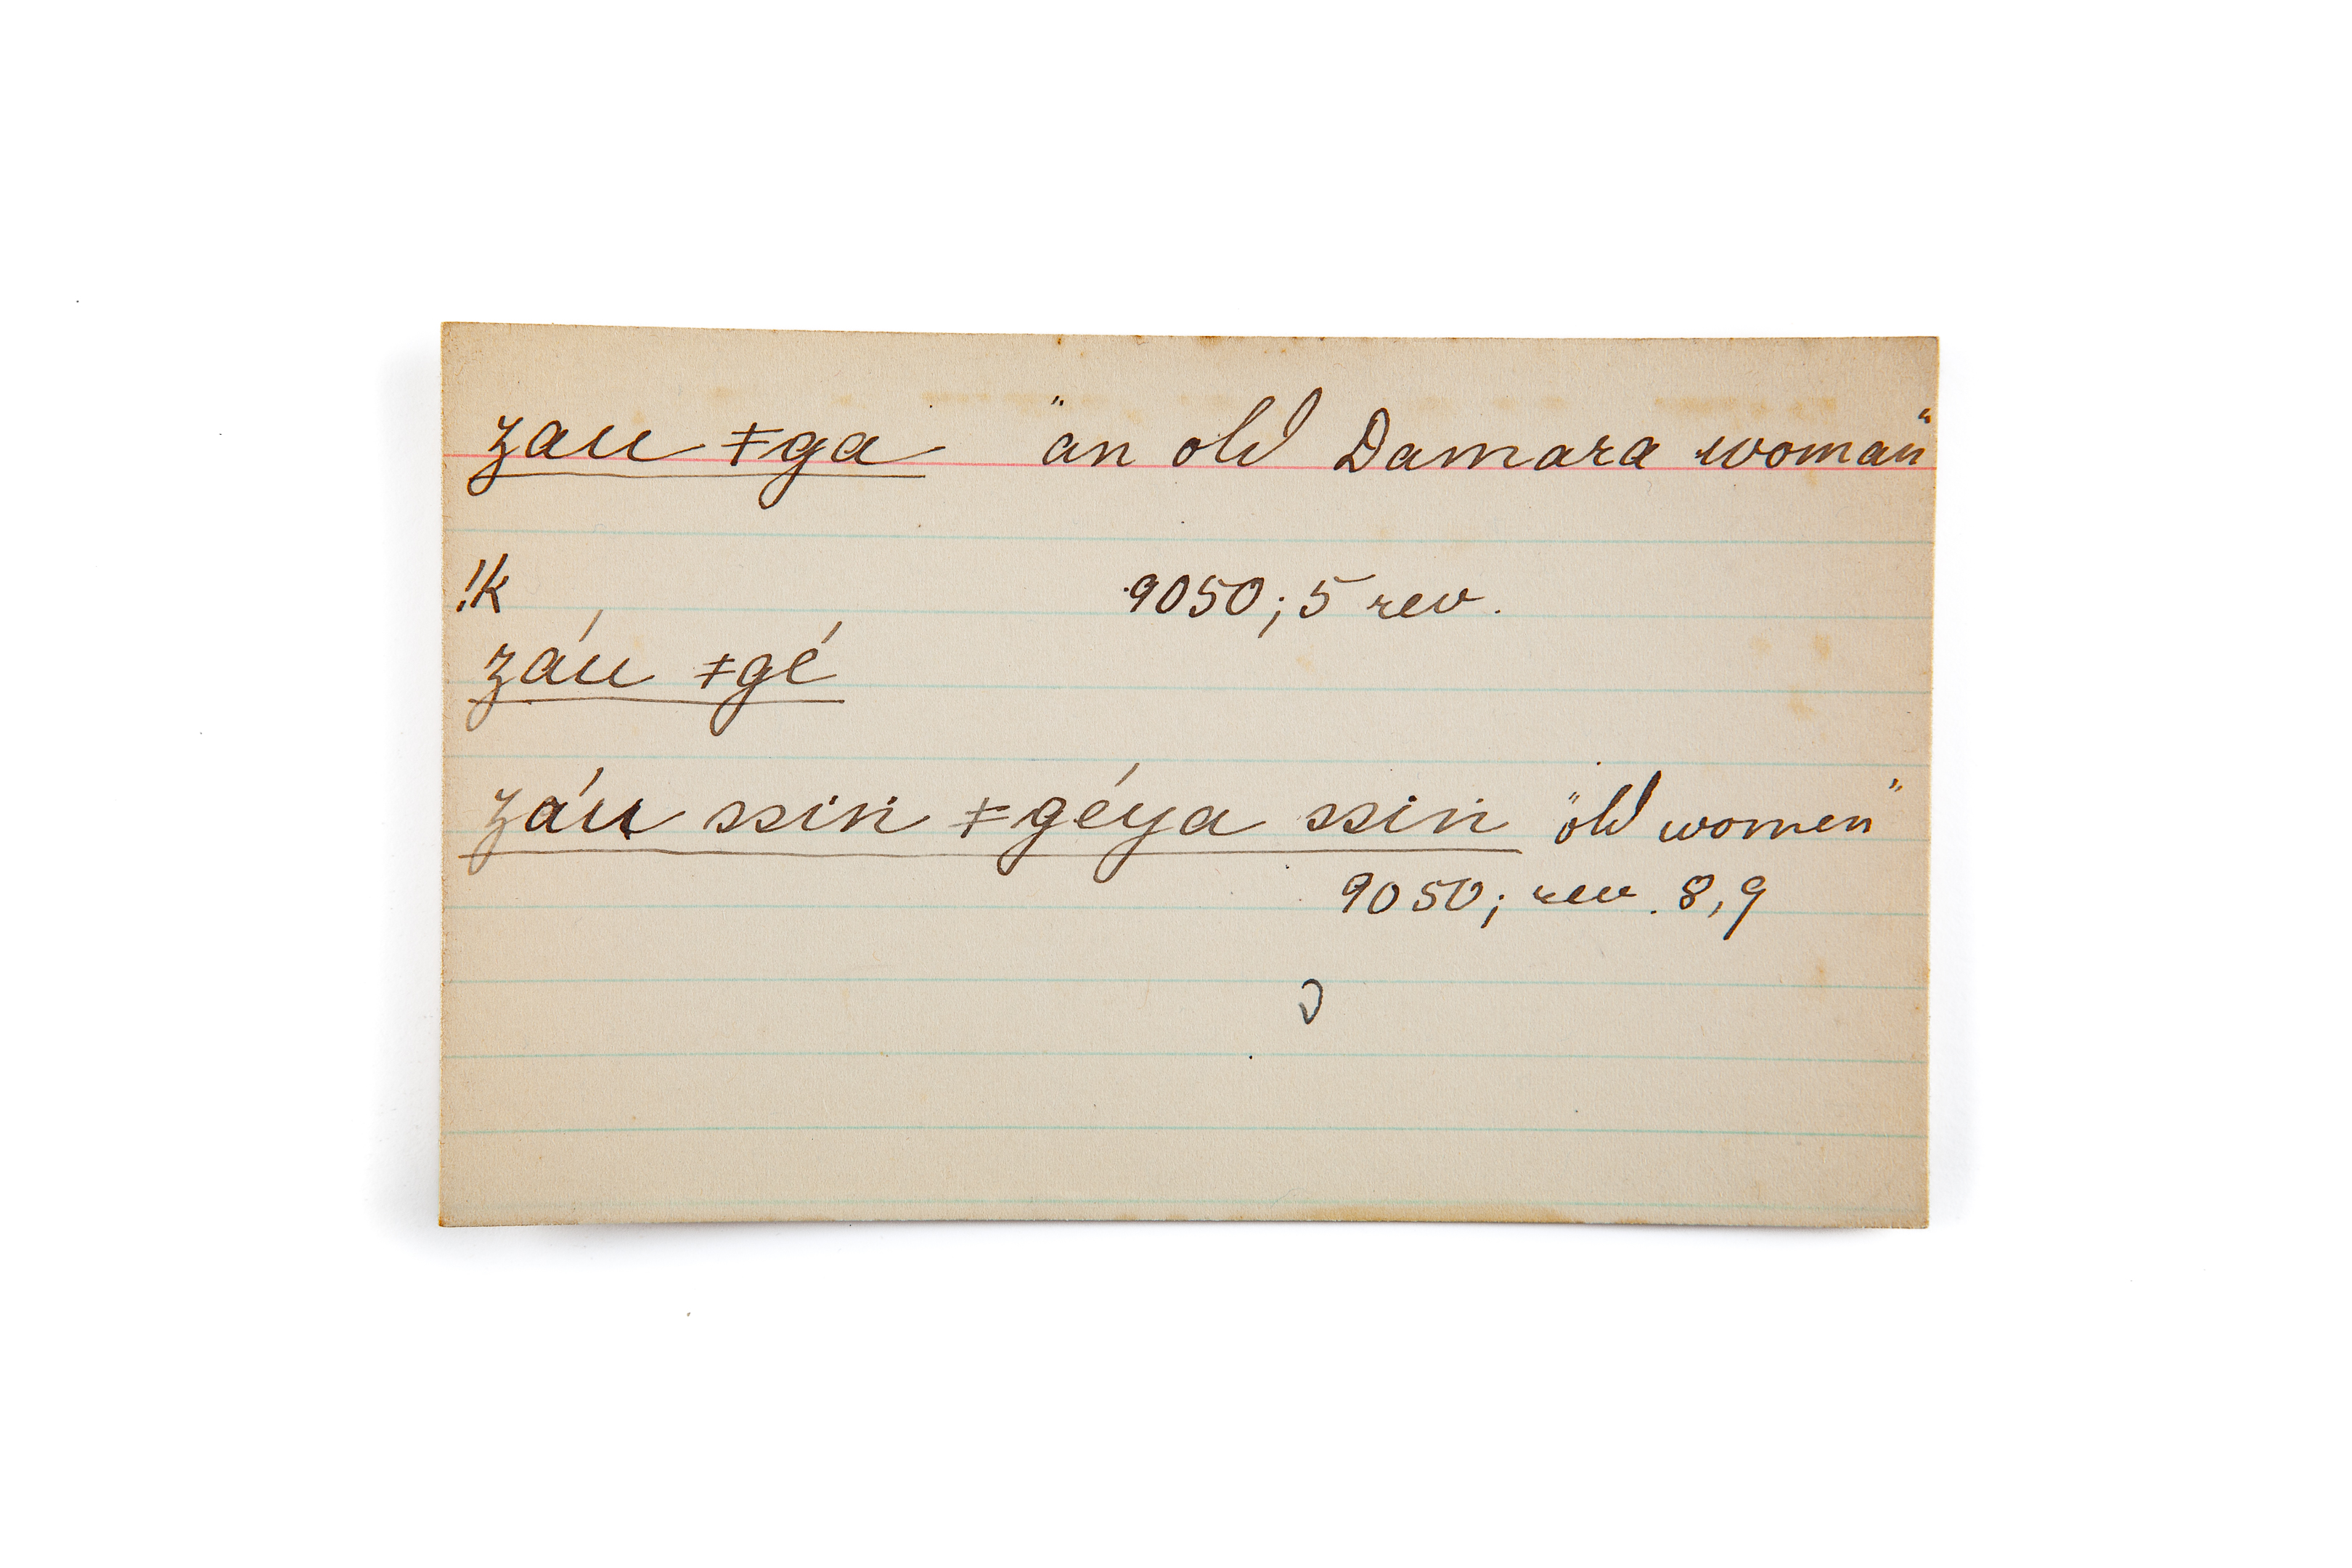 zau ǂga "an old Damara woman"
!k 9050; 5 rev.
záu ǂgé
záu ssin ǂgéya ssin "old women"
9050; rev. 8, 9